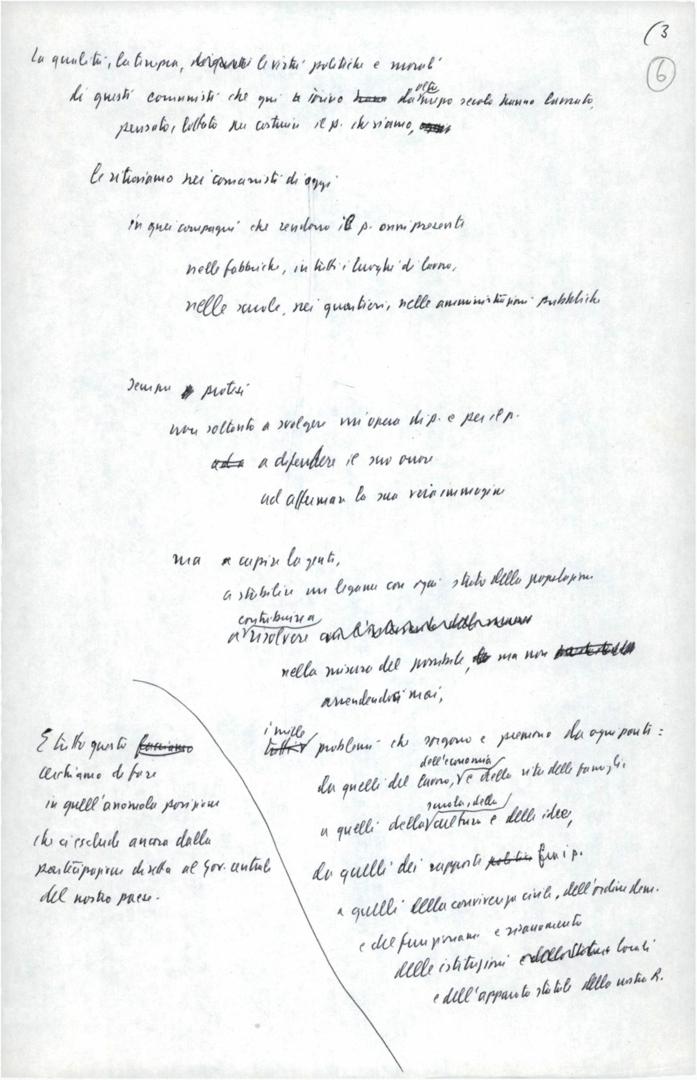 (3
6
La qualità, la tempra, le virtù politiche e morali
di questi comunisti che qui a Torino da oltre mezzo secolo hanno lavorato,
pensato, lottato per costruire il p. che siamo,
le ritroviamo nei comunisti di oggi
in quei compagni che rendono il p. onnipresente
nelle fabbriche, in tutti i luoghi di lavoro,
nelle scuole, nei quartieri, nelle amministrazioni pubbliche
sempre protesi
non soltanto a svolgere un'opera di p. e per il p.
a difendere il suo onore
ad affermare la sua vera immagine
ma a capire la gente,
a stabilire un legame con ogni strato della popolazione
contribuire a
a risolvere
nella misura del possibile, ma non
arrendendosi mai,
i mille
problemi che sorgono e premono da ogni parte:
dell'economia
da quelli del lavoro, e della vita delle famiglie
scuola, della
a quelli della cultura e delle idee,
da quelli dei rapporti fra i p.
a quelli della convivenza civile, dell'ordine dem.
e del funzionam. e risanamento
delle istituzioni locali
e dell'apparato statale della nostra R.
E tutto questo facciamo
cerchiamo di fare
in quell'anomala posizione
che ci esclude ancora dalla
partecipazione diretta al gov. centrale
del nostro paese.